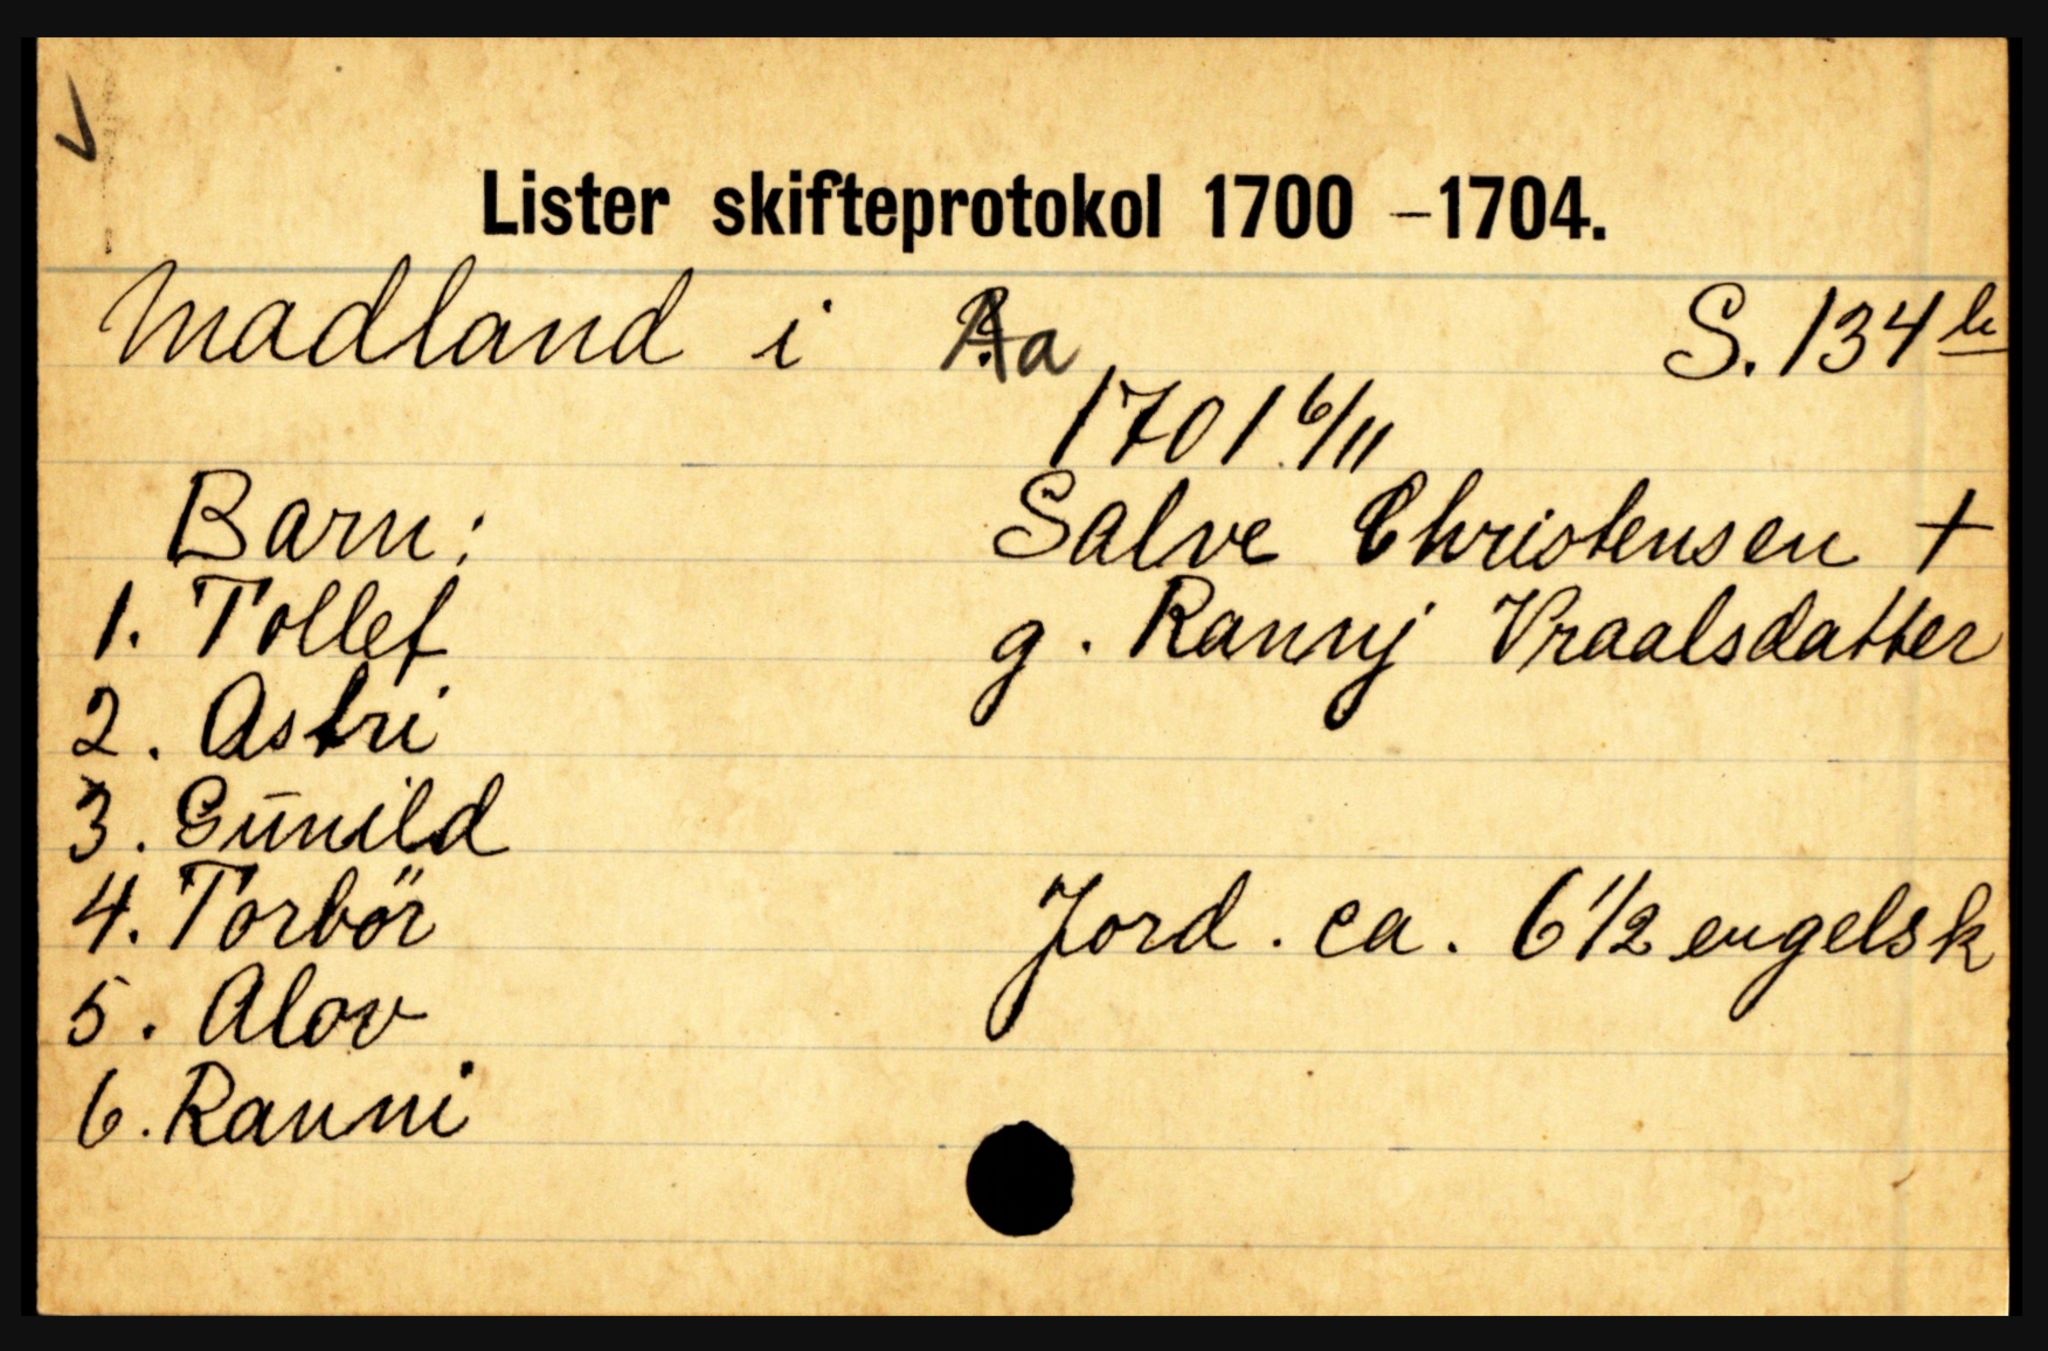 Lister skifteprotokol 1700 - 1704.
Madland i Aa S. 134 b
1701 6/11
Barn: Salve Christensen +
1. Tollef g. Rannj Vraalsdatter
2. Astri
3. Gūnild
4. Torbör Jord. ca. 6 1/2 engelsk
5. Alov
6. Ranni